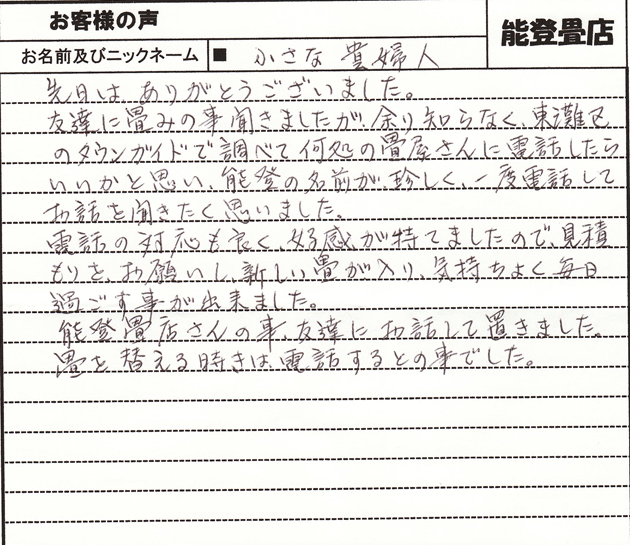 お客様の声
能登畳店
お名前及びニックネーム ■ 小さな貴婦人
先日は ありがとうございました。
友達に畳みの事聞きましたが、余り知らなく、東灘区
のタウンガイドで調べて何処の畳屋さんに電話したら
いいかと思い、能登の名前が、珍しく、一度電話して
お話を聞きたく思いました。
電話の対応も良く、好感が持てましたので、見積
もりを、お願いし、新しい畳が入り、気持ちよく毎日
過ごす事が出来ました。
能登畳店さんの事、友達にお話して置きました。
畳を替える時きは、電話するとの事でした。